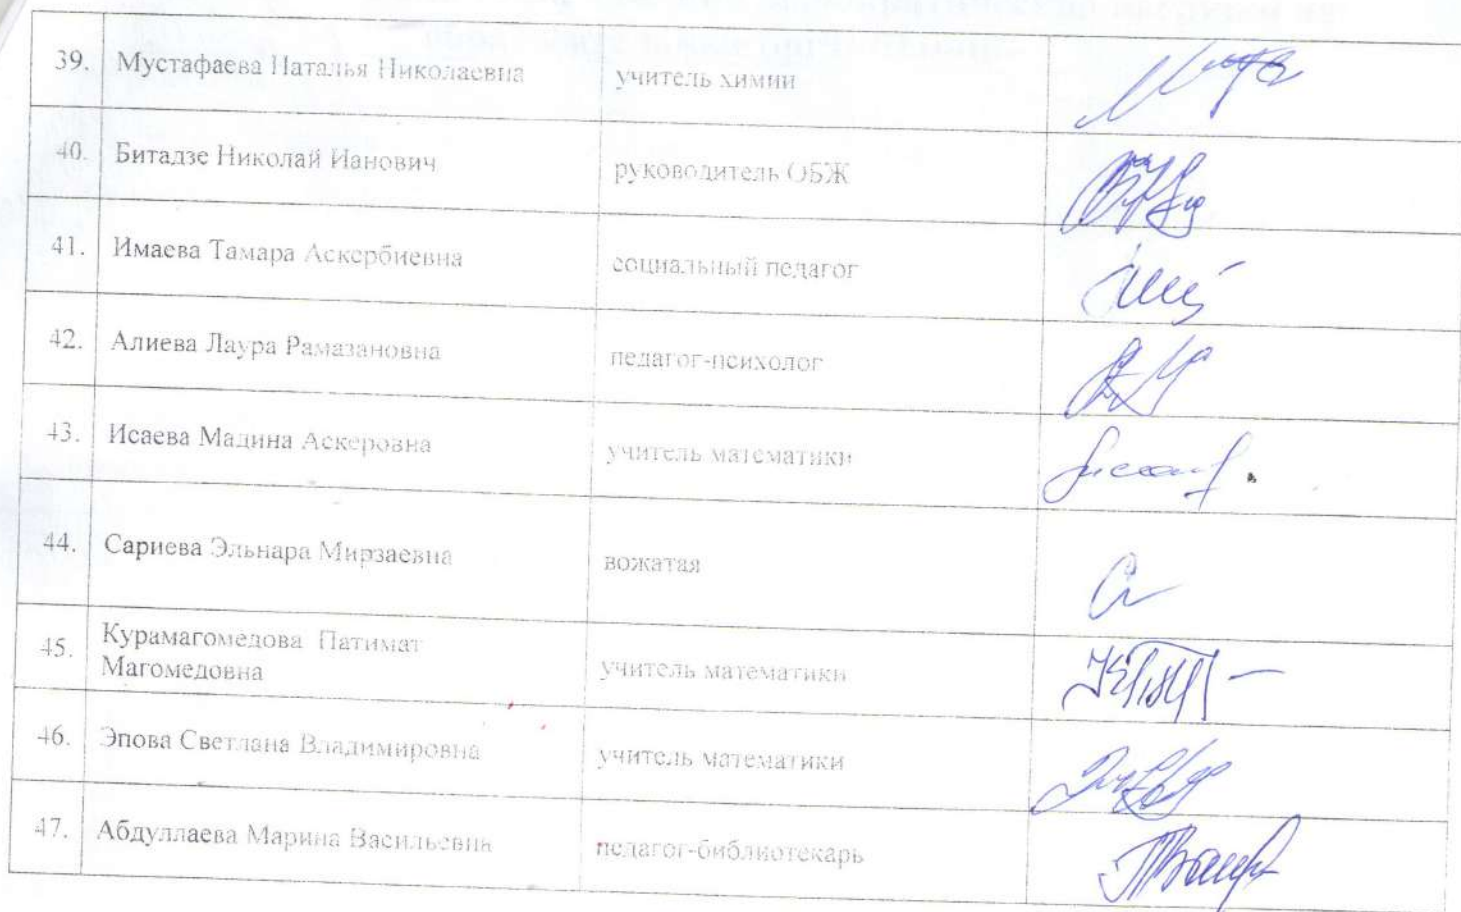 39. Мустафаева Наталья Николаевна учитель химии
40. Битадзе Николай Ианович руководитель ОБЖ
41. Имаева Тамара Аскербиевна социальный педагог
42. Алиева Лаура Рамазановна педагог-психолог
43. Исаева Мадина Аскеровна учитель математики
44. Сариева Эльнара Мирзаевна вожатая
45. Курамагомедова Патимат
Магомедовна учитель математики
46. Эпова Светлана Владимировна учитель математики
47. Абдуллаева Марина Васильевна педагог-библиотекарь